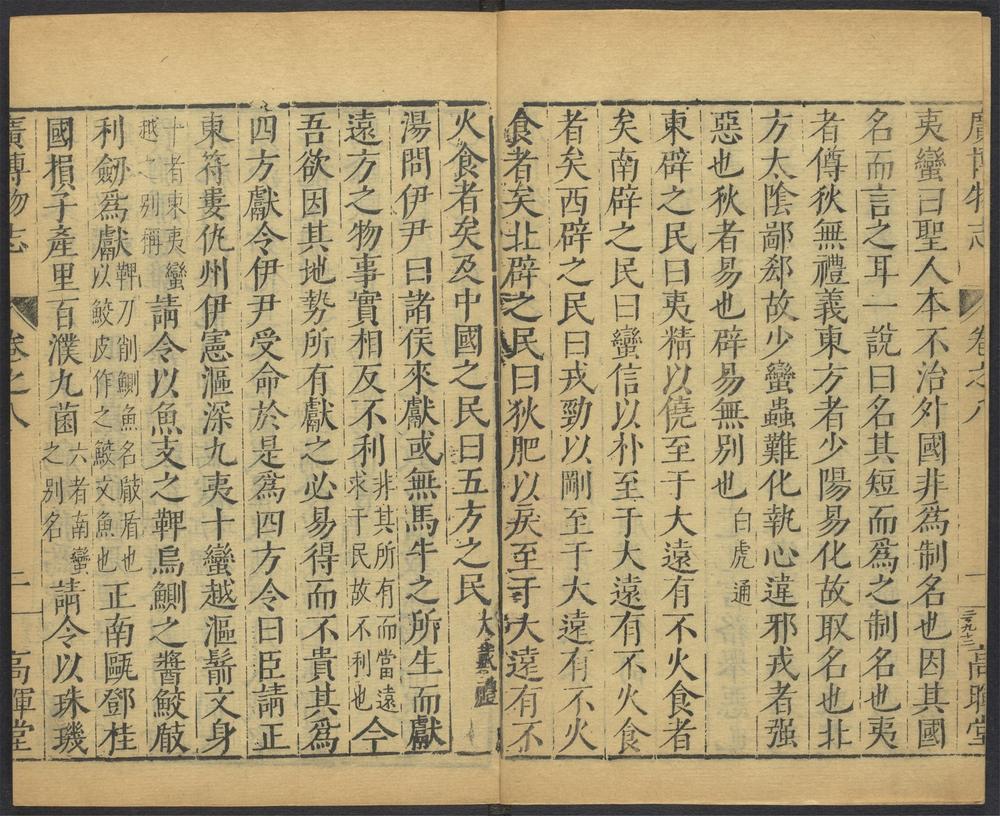 廣博物志 卷之八 一 高暉堂
夷蠻曰聖人本不治外國非爲制名也因其國
名而言之耳一說曰名其短而爲之制名也夷
者僔狄無禮義東方者少陽易化故取名也北
方太陰鄙郄故少蠻蟲難化執心違邪戎者强
惡也狄者易也辟易無別也白虎通
東辟之民曰夷精以僥至于大遠有不火食者
矣南辟之民曰蠻信以朴至于大遠有不火食
者矣西辟之民曰戎勁以剛至于大遠有不火
食者矣北辟之民曰狄肥以戾至于大遠有不
火食者矣及中國之民曰五方之民大戴禮
湯問伊尹曰諸侯來獻或無馬牛之所生而獻
遠方之物事實相反不利非其所有而當遠求于民故不利也今
吾欲因其地勢所有獻之必易得而不貴其爲
四方獻令伊尹受命於是爲四方令曰臣請正
東符婁仇州伊慮漚深九夷十蠻越漚鬋文身
十者東夷蠻越之別稱請令以魚支之鞞烏鰂之醬鮫瞂
利劒爲獻鞞刀削鰂魚名瞂盾也以鮫皮作之鮫文魚也正南甌鄧桂
國損子產里百濮九菌六者南蠻之別名請令以珠璣
廣博物志 卷之八 二 高暉堂